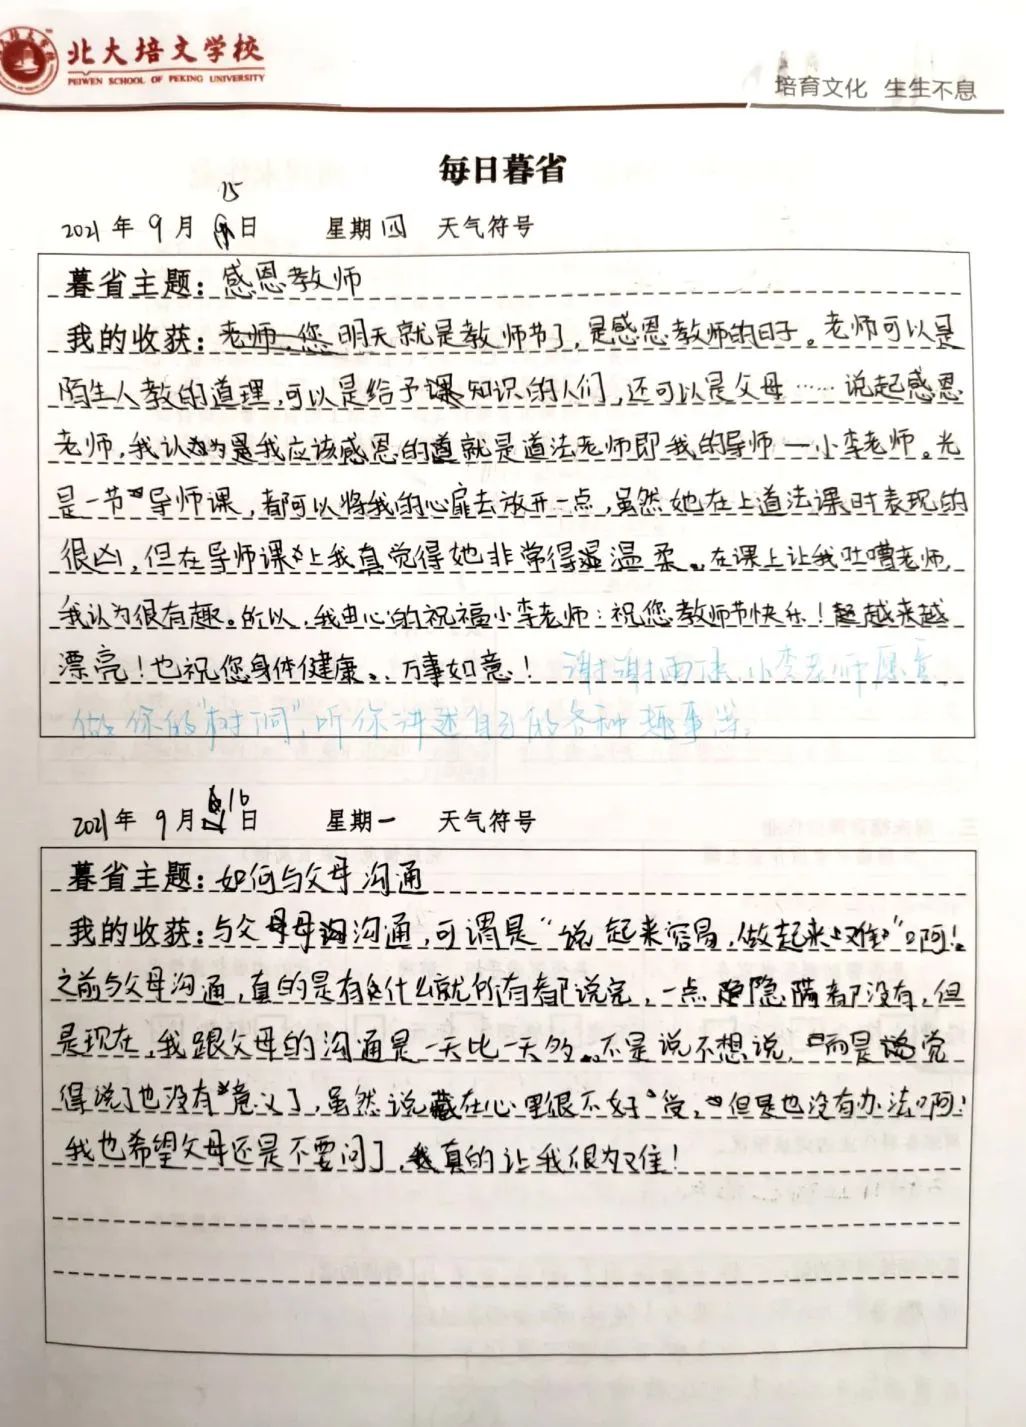 北大培文学校
PEIWEN SCHOOL OF PEKING UNIVERSITY
培育文化 生生不息
每日暮省
15
2021年9月日 星期四 天气符号
暮省主题：感恩教师
我的收获：老师，您明天就是教师节了，是感恩教师的日子。老师可以是
陌生人教的道理，可以是给予课知识的人们，还可以是父母……说起感恩
老师，我认为是我应该感恩的就是道法老师即我的导师——小李老师。光
是一节导师课，都可以将我的心扉去放开一点，虽然她在上道法课时表现的
很凶，但在导师课上我真觉得她非常得温柔。在课上让我吐嘈老师，
我认为很有趣。所以，我由心的祝福小李老师：祝您教师节快乐！越来越
漂亮！也祝您身体健康、万事如意！谢谢雨涵，小李老师愿意
做你的“树洞”，听你讲述自己的各种趣事等。
16
2021年9月日 星期一 天气符号
暮省主题：如何与父母沟通
我的收获：与父母沟通，可谓是“说起来容易，做起来难”啊！
之前与父母沟通，真的是有什么就所有都说完，一点隐瞒都没有，但
是现在，我跟父母的沟通是一天比一天少。不是说不想说，而是觉
得说了也没有意义了，虽然说藏在心里很不好受，但是也没有办法啊！
我也希望父母还是不要问了，真的让我很为难！